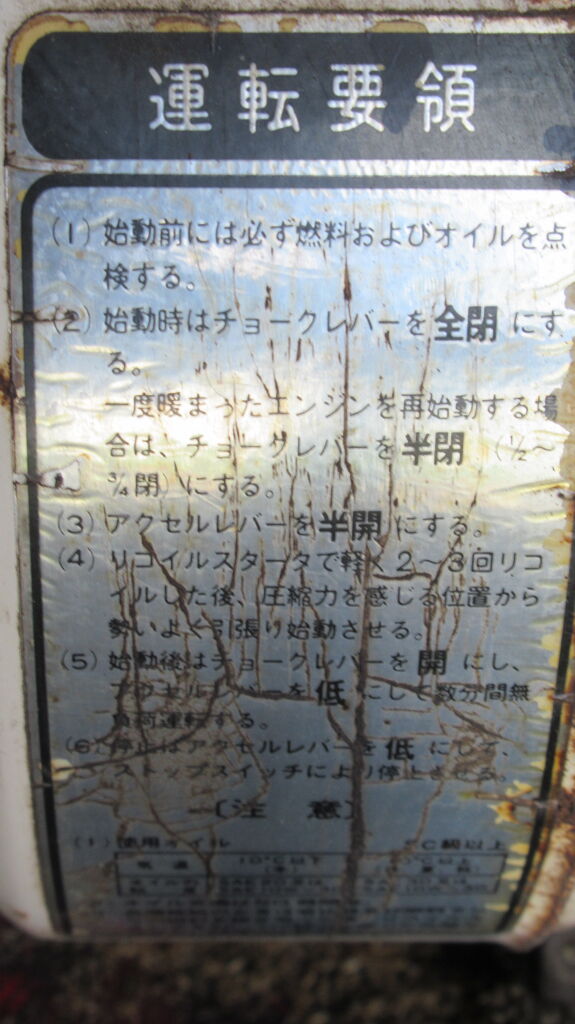 運転要領
(1) 始動前には必ず燃料およびオイルを点
検する。
(2) 始動時はチョークレバーを全閉にす
る。
一度暖まったエンジンを再始動する場
合は、チョークレバーを半閉 (1/2〜
3/4閉) にする。
(3) アクセルレバーを半開にする。
(4) リコイルスタータで軽く2〜3回リコ
イルした後、圧縮力を感じる位置から
勢いよく引張り始動させる。
(5) 始動後はチョークレバーを開にし、
アクセルレバーを低にして数分間無
負荷運転する。
(6) 停止はアクセルレバーを低にして、
ストップスイッチにより停止させる。
〔注 意〕
(1) 使用オイル
級以上
気温 10°C以下